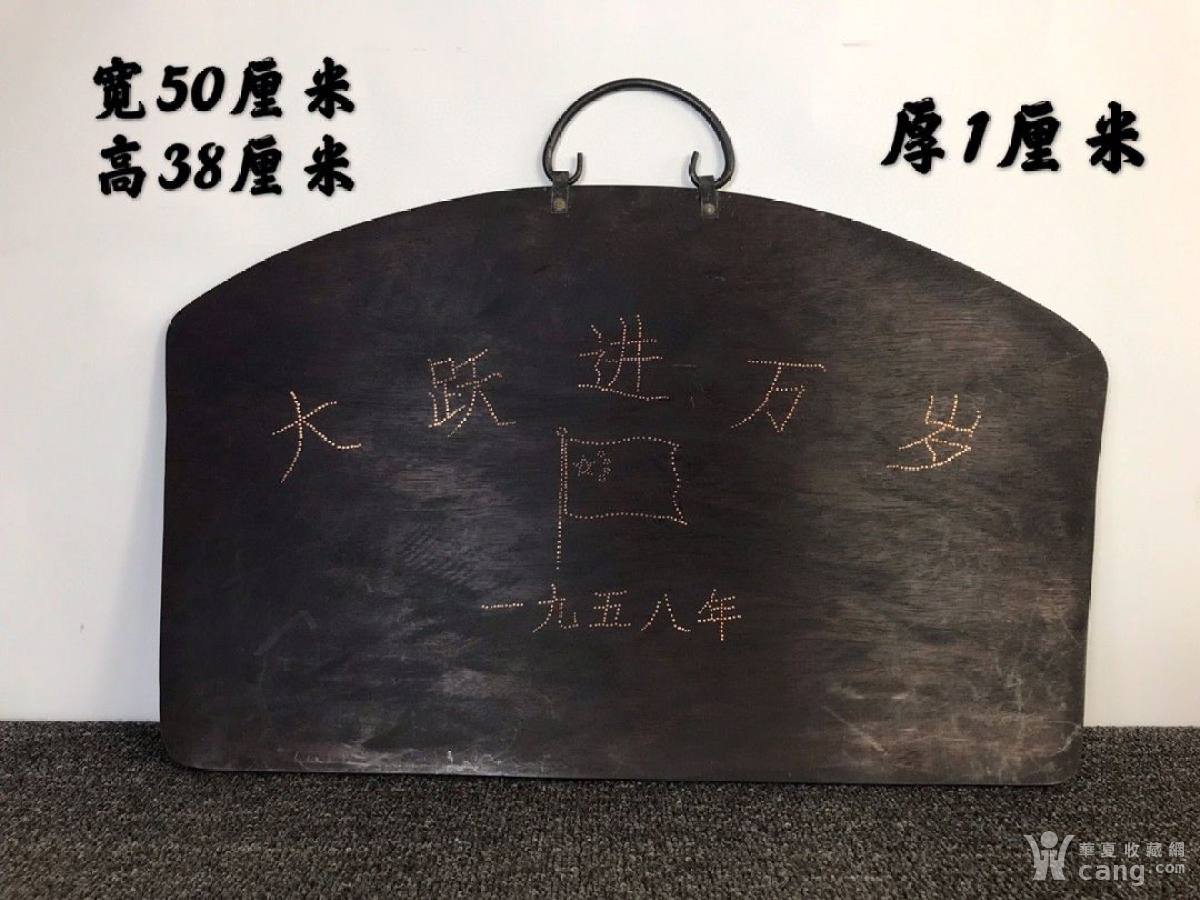 宽50厘米
高38厘米
厚1厘米
大跃进万岁
一九五八年
華夏收藏網
cang.com